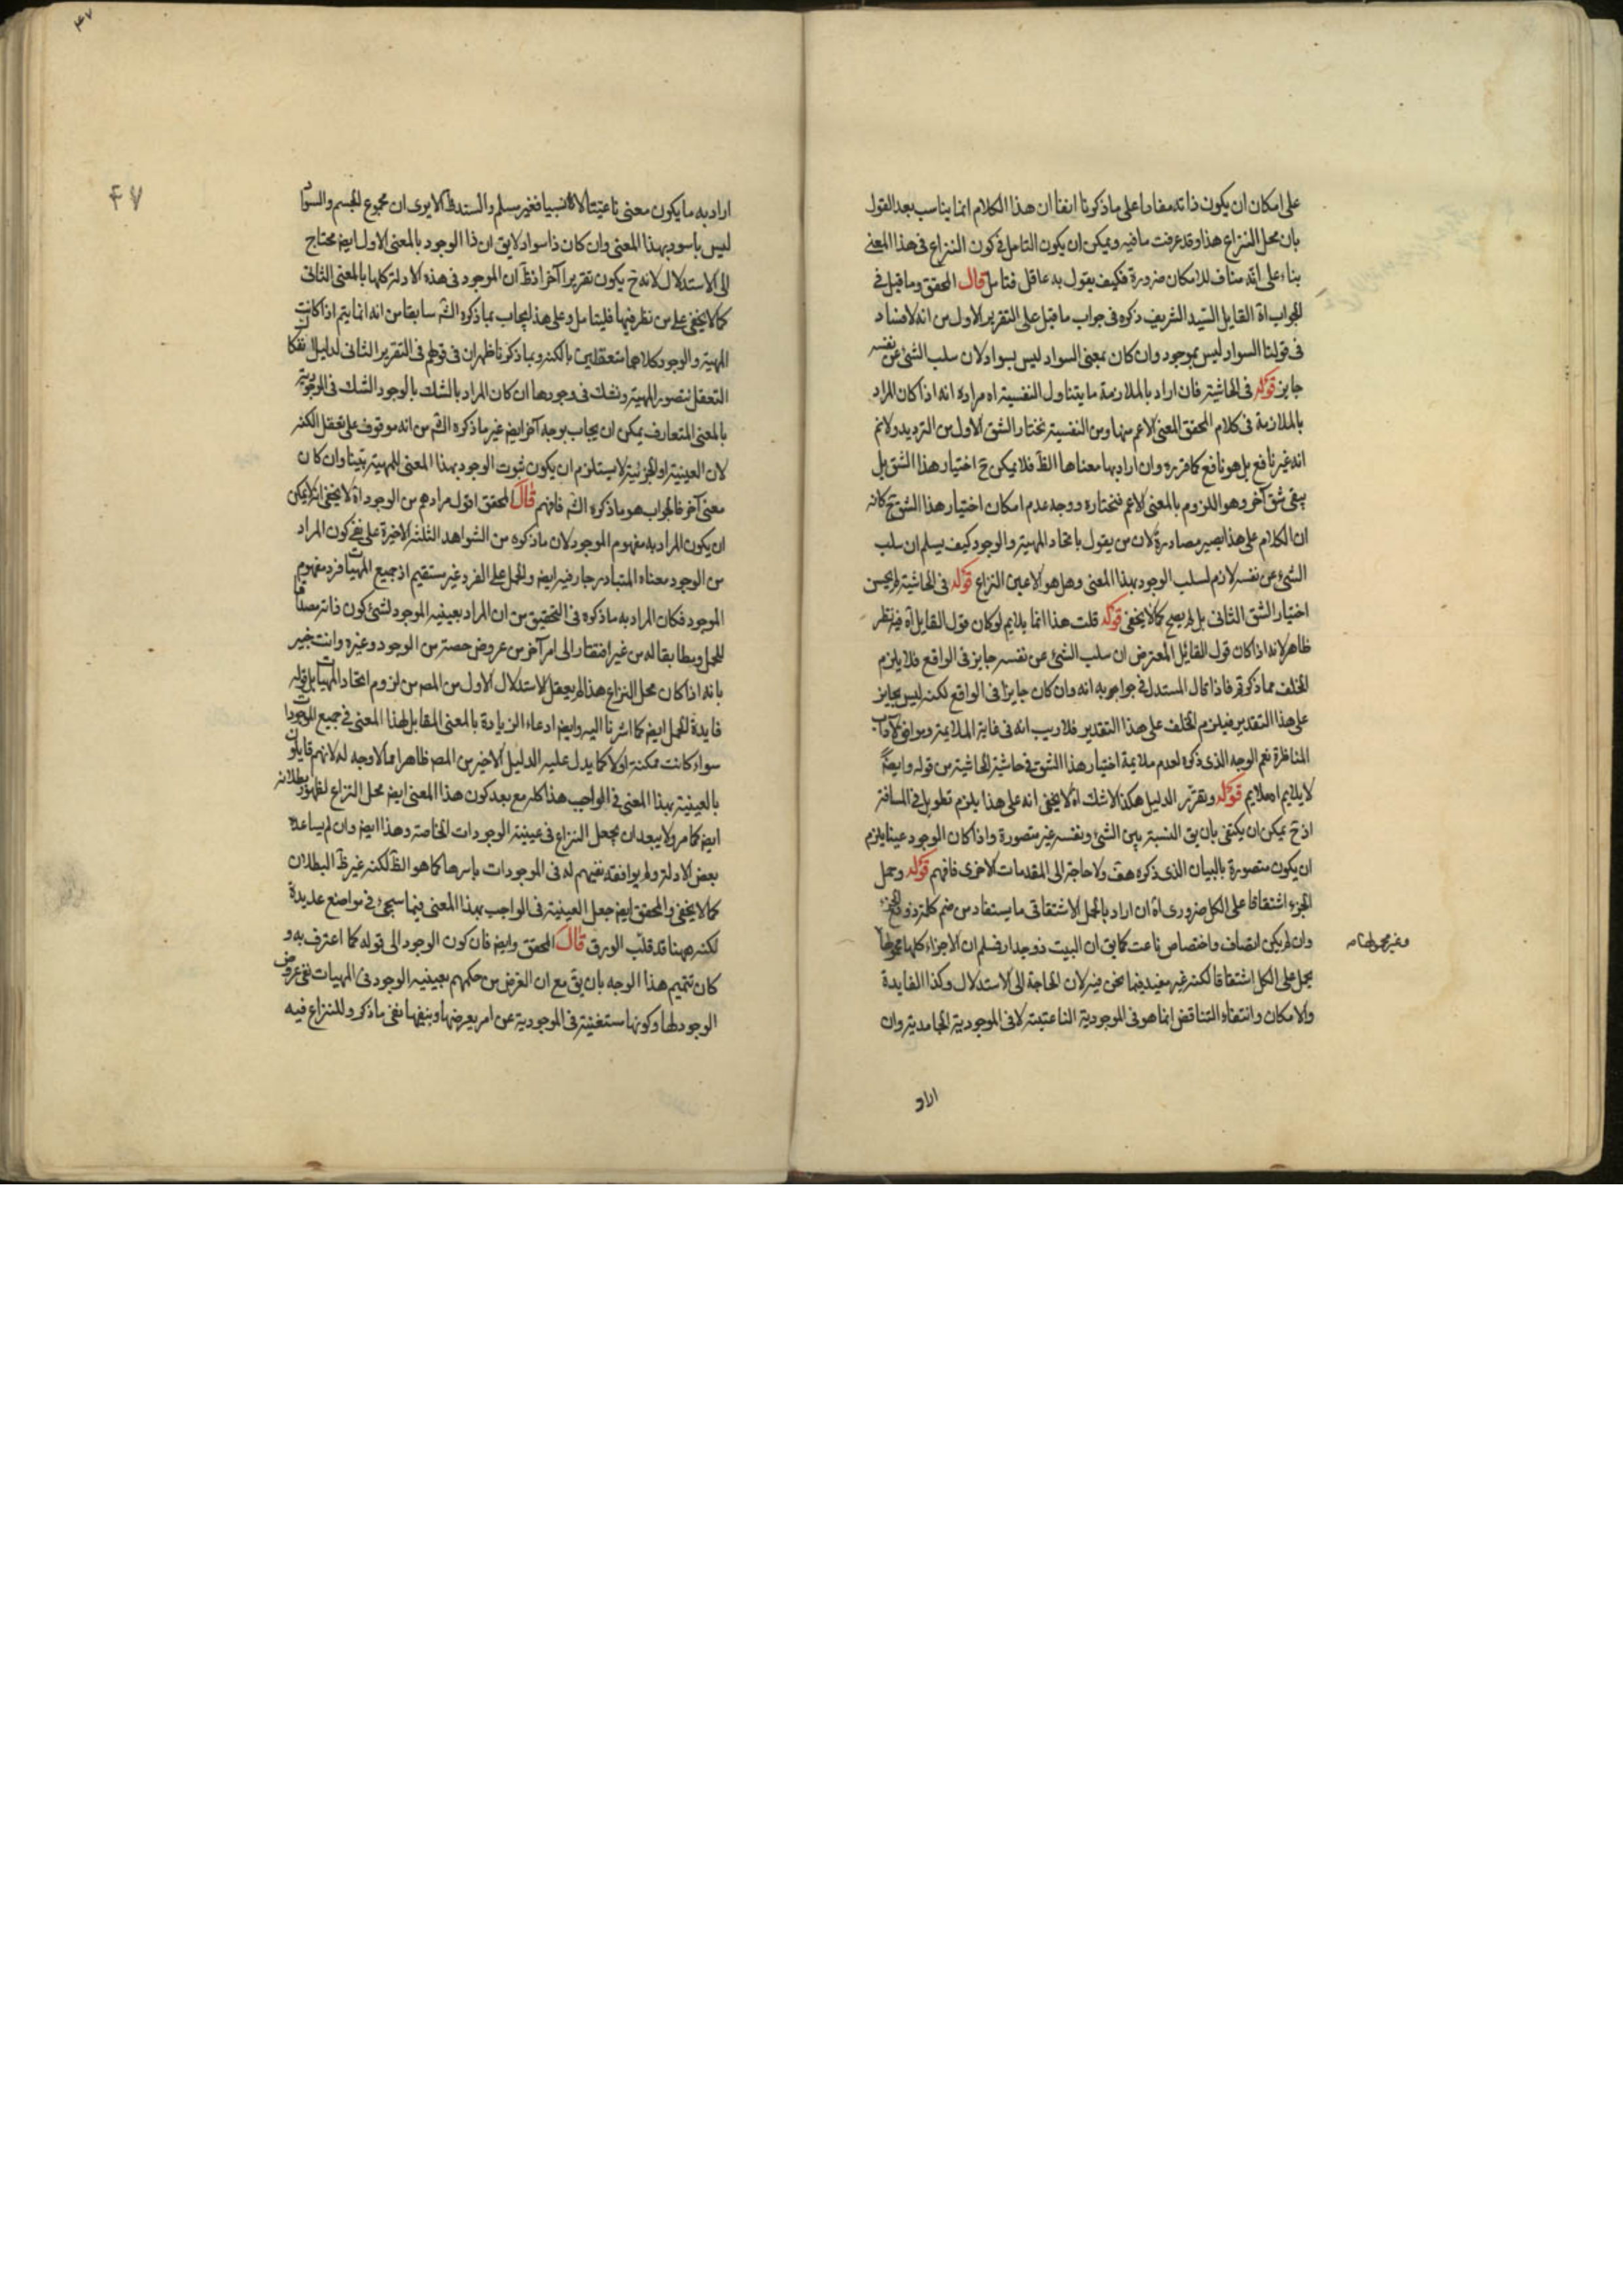 على امكان ان يكون ذاته مفادا على ما ذكرنا انفا ان هذا الكلام انما يناسب بعد القول
بان محل النزاع هذا وقد عرفت ما فيه ويمكن ان يكون التامل في كون النزاع في هذا المعنى
بناء على انه مناف للامكان ضرورة فكيف يقول به عاقل فتامل قال المحقق وما قيل في
الجواب اه القايل السيد الشريف ذكره في جواب ما قيل على التقرير الاول من انه لا فساد
في قولنا السواد ليس بموجود وان كان بمعنى السواد ليس بسواد لان سلب الشئ عن نفسه
جايز قوله في الحاشية فان اراد بالملازمة ما يتناول النفسية اه مراده انه اذا كان المراد
بالملازمة في كلام المحقق المعنى الاعم منها ومن النفسية نختار الشق الاول من الترديد ولانم
انه غير نافع بل هو نافع كما قرره وان اراد بها معناها الظ فلا يمكن ح اختيار هذا الشق بل
يبقى شق آخر وهو اللزوم بالمعنى الاعم فنختاره ووجه عدم امكان اختيار هذا الشق ح كانه
ان الكلام على هذا يصير مصادرة لان من يقول باتحاد المهية والوجود كيف يسلم ان سلب
الشئ عن نفسه لازم لسلب الوجود بهذا المعنى وهل هو الا عين النزاع قوله في الحاشية لم يحسن
اختيار الشق الثانى بل لم يصح كما لا يخفى قوله قلت هذا انما يلايم لو كان قول القايل اه فيه نظر
ظاهر لانه اذا كان قول القائل المعترض ان سلب الشئ عن نفسه جايز في الواقع فلا يلزم
الخلف مما ذكرتم فاذا قال المستدل في جوابه انه وان كان جايزا في الواقع لكنه ليس بجايز
على هذا التقدير فيلزم الخلف على هذا التقدير فلا ريب انه في غاية الملايمة ويوافق لآداب
المناظرة نعم الوجه الذى ذكره لعدم ملايمة اختيار هذا الشق في حاشية الحاشية من قوله وايضا
لا يلايم اه ملايم قوله وتقرير الدليل هكذا لا شك اه لا يخفى انه على هذا يلزم تطويل في المسافة
اذ ح يمكن ان يكتفى بان يق النسبة بين الشئ ونفسه غير متصورة واذا كان الوجود عينا يلزم
ان يكون متصورة بالبيان الذى ذكره هف ولا حاجة الى المقدمات الاخرى فافهم قوله وحمل
الجزء اشتقاقا على الكل ضرورى اه ان اراد بالحمل الاشتقاقى ما يستفاد من ضم كلمة ذو مع الجزء
وان لم يكن اتصاف واختصاص ناعت كما يق ان البيت ذو جدار فسلم ان الاجزاء كلها محمولها
يحمل على الكل اشتقاقا لكنه غير مفيد فيما نحن فيه لان الحاجة الى الاستدلال وكذا الفايدة
والامكان وانتفاء التناقض انما هو في الموجودية الناعتية لا في الموجودية وان
اراد
٤٧
اراد به ما يكون معنى ناعتيا فغير مسلم والسند ظ الا يرى ان مجموع الجسم والسواد
ليس باسود بهذا المعنى وان كان ذا سواد لا يق ان ذا الوجود بالمعنى الاول ايض محتاج
الى الاستدلال لانه ح يكون تقريرا آخر اذ ظ ان الموجود في هذه الادلة كلها بالمعنى الثانى
كما لا يخفى على من نظر فيها فليتامل وعلى هذا يجاب بما ذكره الش سابقا من انه انما يتم اذا كانت
المهية والوجود كلاهما متعقلين بالكنه وبما ذكرنا ظهر ان في قولهم في التقرير الثانى لدليل انفكاك
التعقل نتصور المهية ونشك في وجودها ان كان المراد بالشك بالوجود الشك في الموجودية
بالمعنى المتعارف يمكن ان يجاب بوجه آخر ايض غير ما ذكره الش من انه موقوف على تعقل الكنه
لان العينية او الجزئية لا يستلزم ان يكون ثبوت الوجود بهذا المعنى للمهية بينا وان كان
معنى آخر فالجواب هو ما ذكره الش فافهم قال المحقق اقول مرادهم من الوجود اه لا يخفى انه لا يمكن
ان يكون المراد به مفهوم الموجود لان ما ذكره من الشواهد الثلثة الاخيرة على نفى كون المراد
من الوجود معناه المتبادر جار فيه ايض والحمل على الفرد غير مستقيم اذ جميع المهيات فرد مفهوم
الموجود فكان المراد به ما ذكره في التحقيق من ان المراد بعينية الموجود لشئ كون ذاته مصداقا
للحمل ومطابقا له من غير افتقار الى امر آخر من عروض حصة من الوجود وغيره وانت خبير
بانه اذا كان محل النزاع هذا لم يعقل الاستدلال الاول من المص من لزوم اتحاد المهيات بل قوله
فايدة الحمل ايض كما اشرنا اليه وايض ادعاء الزيادة بالمعنى المقابل لهذا المعنى في جميع الموجودات
سواء كانت ممكنة او لا كما يدل عليه الدليل الاخير من المص ظاهرا مما لا وجه له لانهم قايلون
بالعينية بهذا المعنى في الواجب هذا كله مع بعد كون هذا المعنى ايض محل النزاع لظهور بطلانه
ايض كما مر ولا يبعد ان يجعل النزاع في عينية الوجودات الخاصة وهذا ايض وان لم يساعده
بعض الادلة ولم يوافقه نفيهم له في الموجودات باسرها كما هو الظ لكنه غير ظ البطلان
كما لا يخفى والمحقق ايض جعل العينية في الواجب بهذا المعنى فيما سيجئ في مواضع عديدة
لكنه ههنا قد قلب الورق قال المحقق وايض فان كون الوجود الى قوله كما اعترف به و
كان تتميم هذا الوجه بان يق مع ان الغرض من حكمهم بعينية الوجود في المهيات نفى عروض
الوجود لها وكونها مستغنية في الموجودية عن امر يعرضها وبنفيها نفى ما ذكر وللنزاع فيه